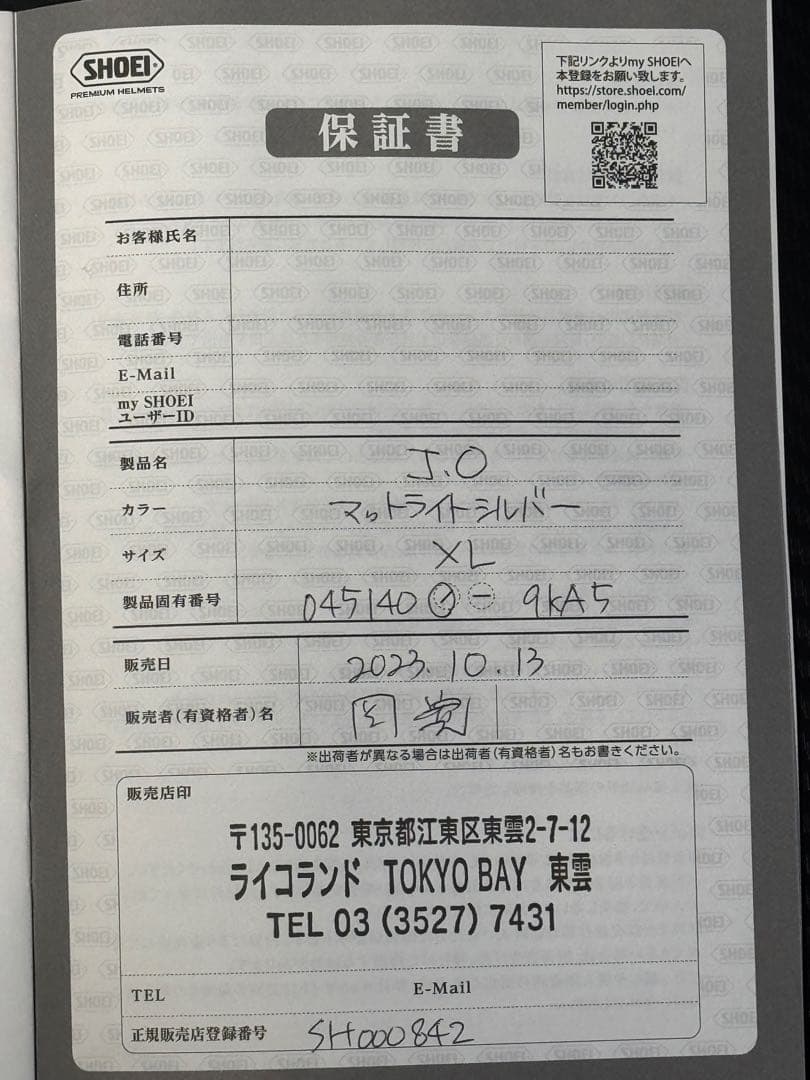 SHOEI
PREMIUM HELMETS
下記リンクよりmy SHOEIへ
本登録をお願い致します。
https://store.shoei.com/
member/login.php
保証書
お客様氏名
住所
電話番号
E-Mail
my SHOEI
ユーザーID
製品名 J.O
カラー マットライトシルバー
サイズ XL
製品固有番号 045140 9KA5
販売日 2023.10.13
販売者(有資格者)名
※出荷者が異なる場合は出荷者(有資格者)名もお書きください。
販売店印
〒135-0062 東京都江東区東雲2-7-12
ライコランド TOKYO BAY 東雲
TEL 03 (3527) 7431
TEL E-Mail
正規販売店登録番号 SH000842